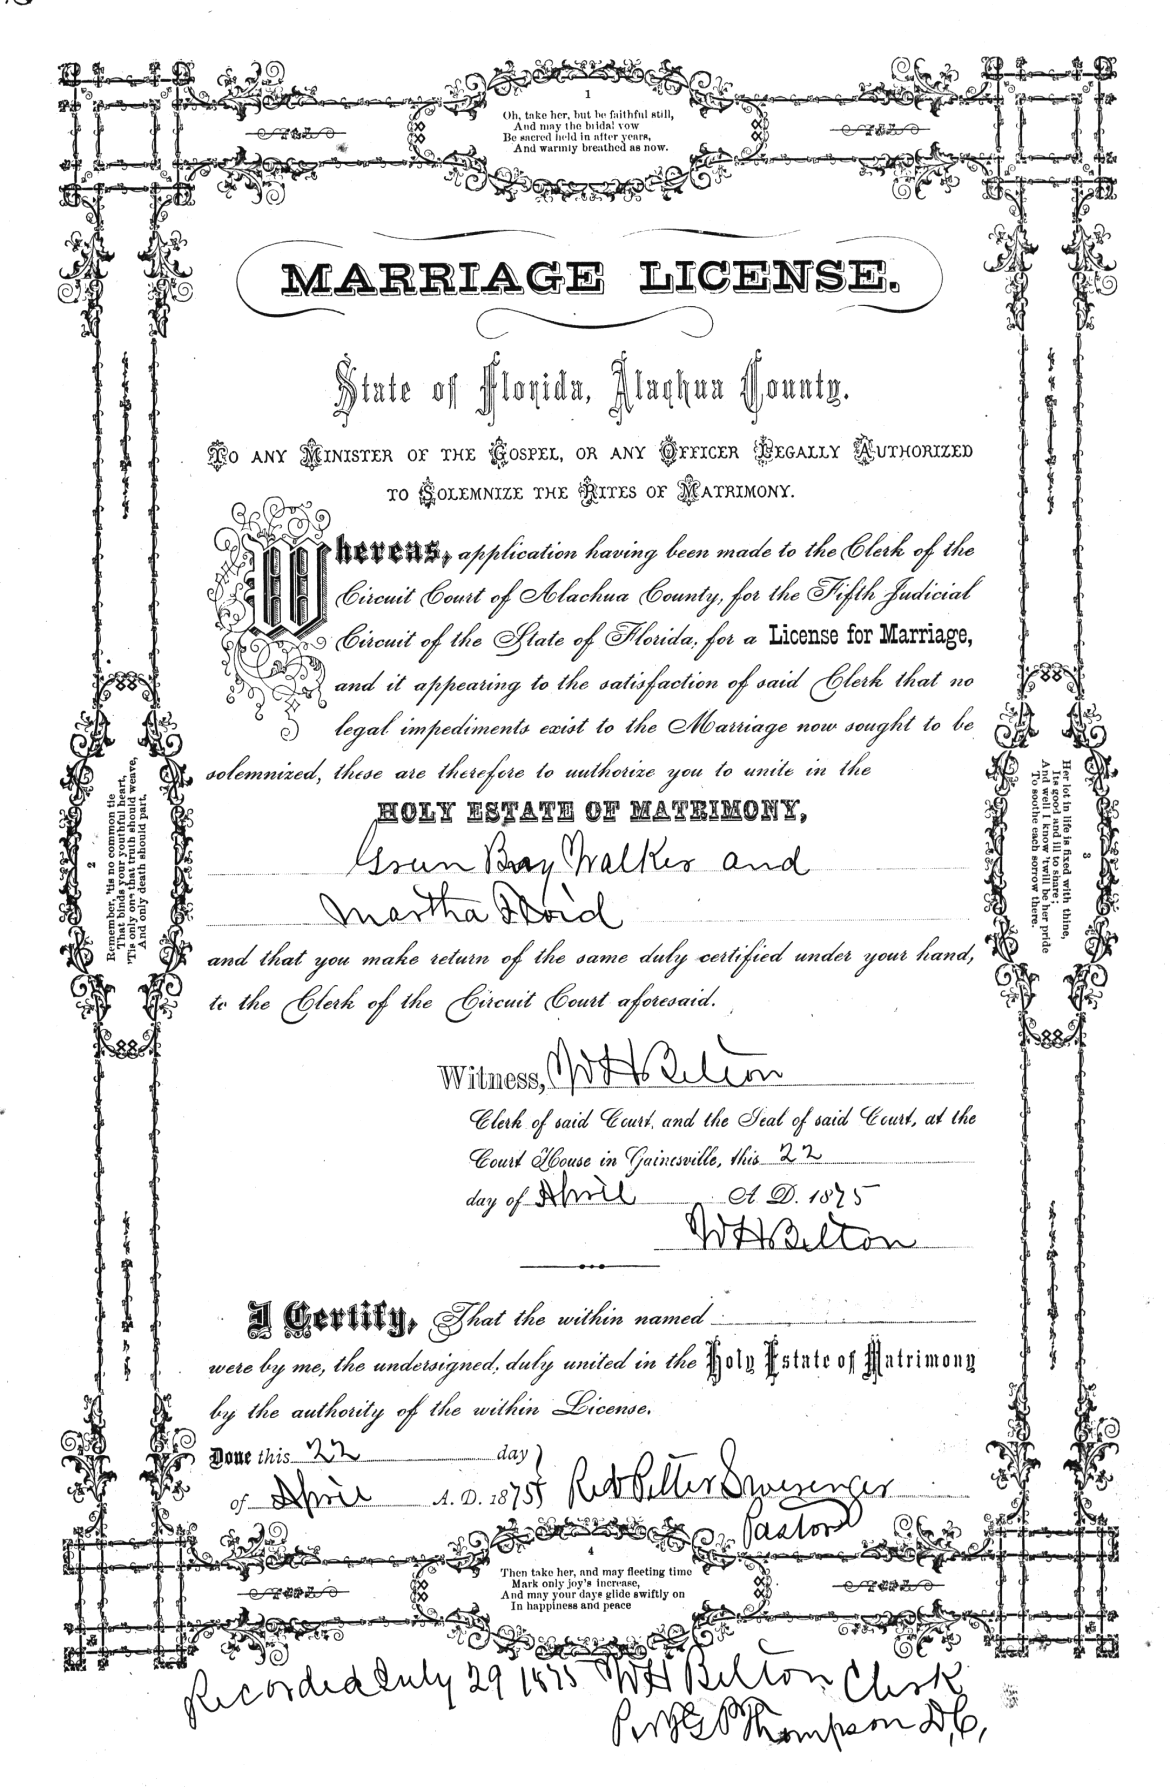 1
Oh, take her, but be faithful still,
And may the bridal vow
Be sacred held in after years,
And warmly breathed as now.
MARRIAGE LICENSE.
State of Florida, Alachua County.
TO ANY MINISTER OF THE GOSPEL, OR ANY OFFICER LEGALLY AUTHORIZED
TO SOLEMNIZE THE RITES OF MATRIMONY.
Whereas, application having been made to the Clerk of the
Circuit Court of Alachua County, for the Fifth Judicial
Circuit of the State of Florida, for a License for Marriage,
and it appearing to the satisfaction of said Clerk that no
legal impediments exist to the Marriage now sought to be
solemnized, these are therefore to authorize you to unite in the
HOLY ESTATE OF MATRIMONY,
Green Bay Walker and
Martha Floid
and that you make return of the same duly certified under your hand,
to the Clerk of the Circuit Court aforesaid.
Witness, W H Belton
Clerk of said Court, and the Seal of said Court, at the
Court House in Gainesville, this 22
day of April A. D. 1875
W H Belton
I Certify, That the within named
were by me, the undersigned, duly united in the Holy Estate of Matrimony
by the authority of the within License.
Done this 22 day
of April A. D. 1875 Revd Petter Swesenger
Pastor
2
Remember, 'tis no common tie
That binds your youthful heart,
'Tis only one that truth should weave,
And only death should part.
3
Her lot in life is fixed with thine,
Its good and ill to share;
And well I know 'twill be her pride
To soothe each sorrow there.
4
Then take her, and may fleeting time
Mark only joy's increase,
And may your days glide swiftly on
In happiness and peace
Recorded July 29 1875 W H Belton Clerk
Per G P Thompson D, C,